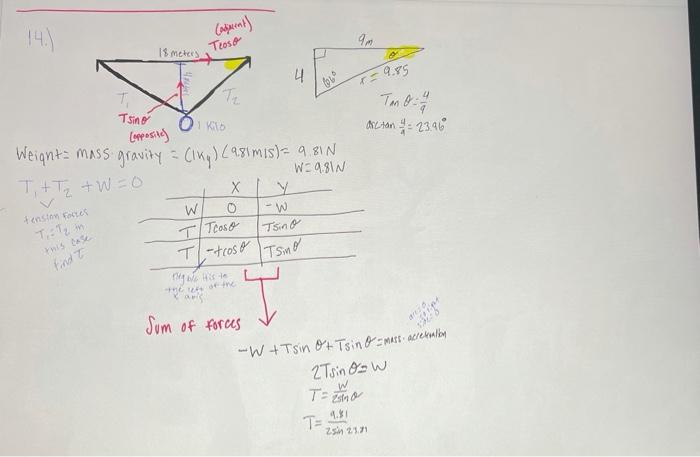 14.)
(adjacent)
Tcosθ
18 meters
T₁
T₂
Tsinθ
(opposite)
1 Kilo
9m
θ
4
66°
x = 9.85
Tan θ = 4/9
arctan 4/9 = 23.96°
Weight = mass · gravity = (1kg)(9.81m/s) = 9.81N
W = 9.81N
T₁ + T₂ + W = 0
tension forces
T₁ = T₂ in
this case
find T
X Y
W 0 -W
T Tcosθ Tsinθ
T -tcosθ Tsinθ
the left of the
x axis
Sum of forces
-W + Tsin θ + Tsin θ = mass · acceleration
2Tsin θ = W
T = W/2sinθ
T = 9.81/2sin 23.91